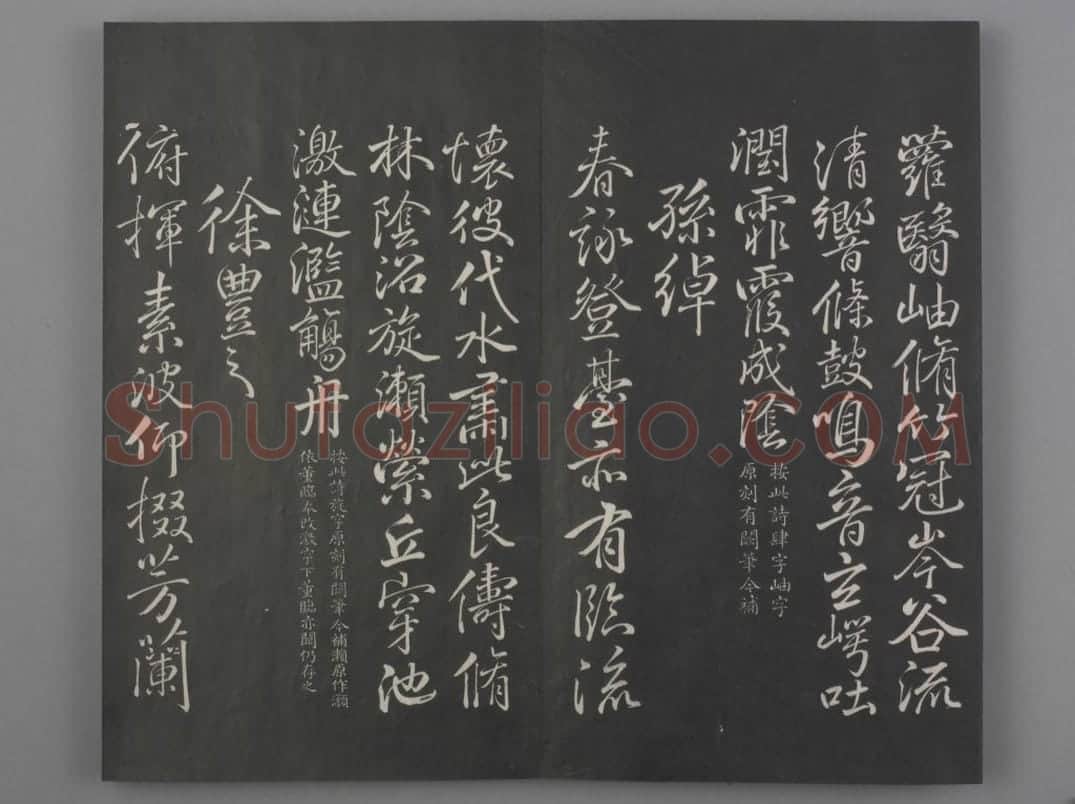 蘿翳岫脩竹冠岑谷流
清響條鼓鳴音玄崿吐
潤霏霧成陰
按此詩肆字岫字
原刻有闕筆今補
孫綽
春詠登臺亦有臨流
懷彼伐木肅此良儔脩
林陰沼旋瀨縈丘穿池
激漣濫觴舟
按此詩旋字原刻有闕筆今補瀨原作瀬
依董臨本改激字下董臨亦闕仍存之
徐豐之
俯揮素波仰掇芳蘭
Shufaziliao.com